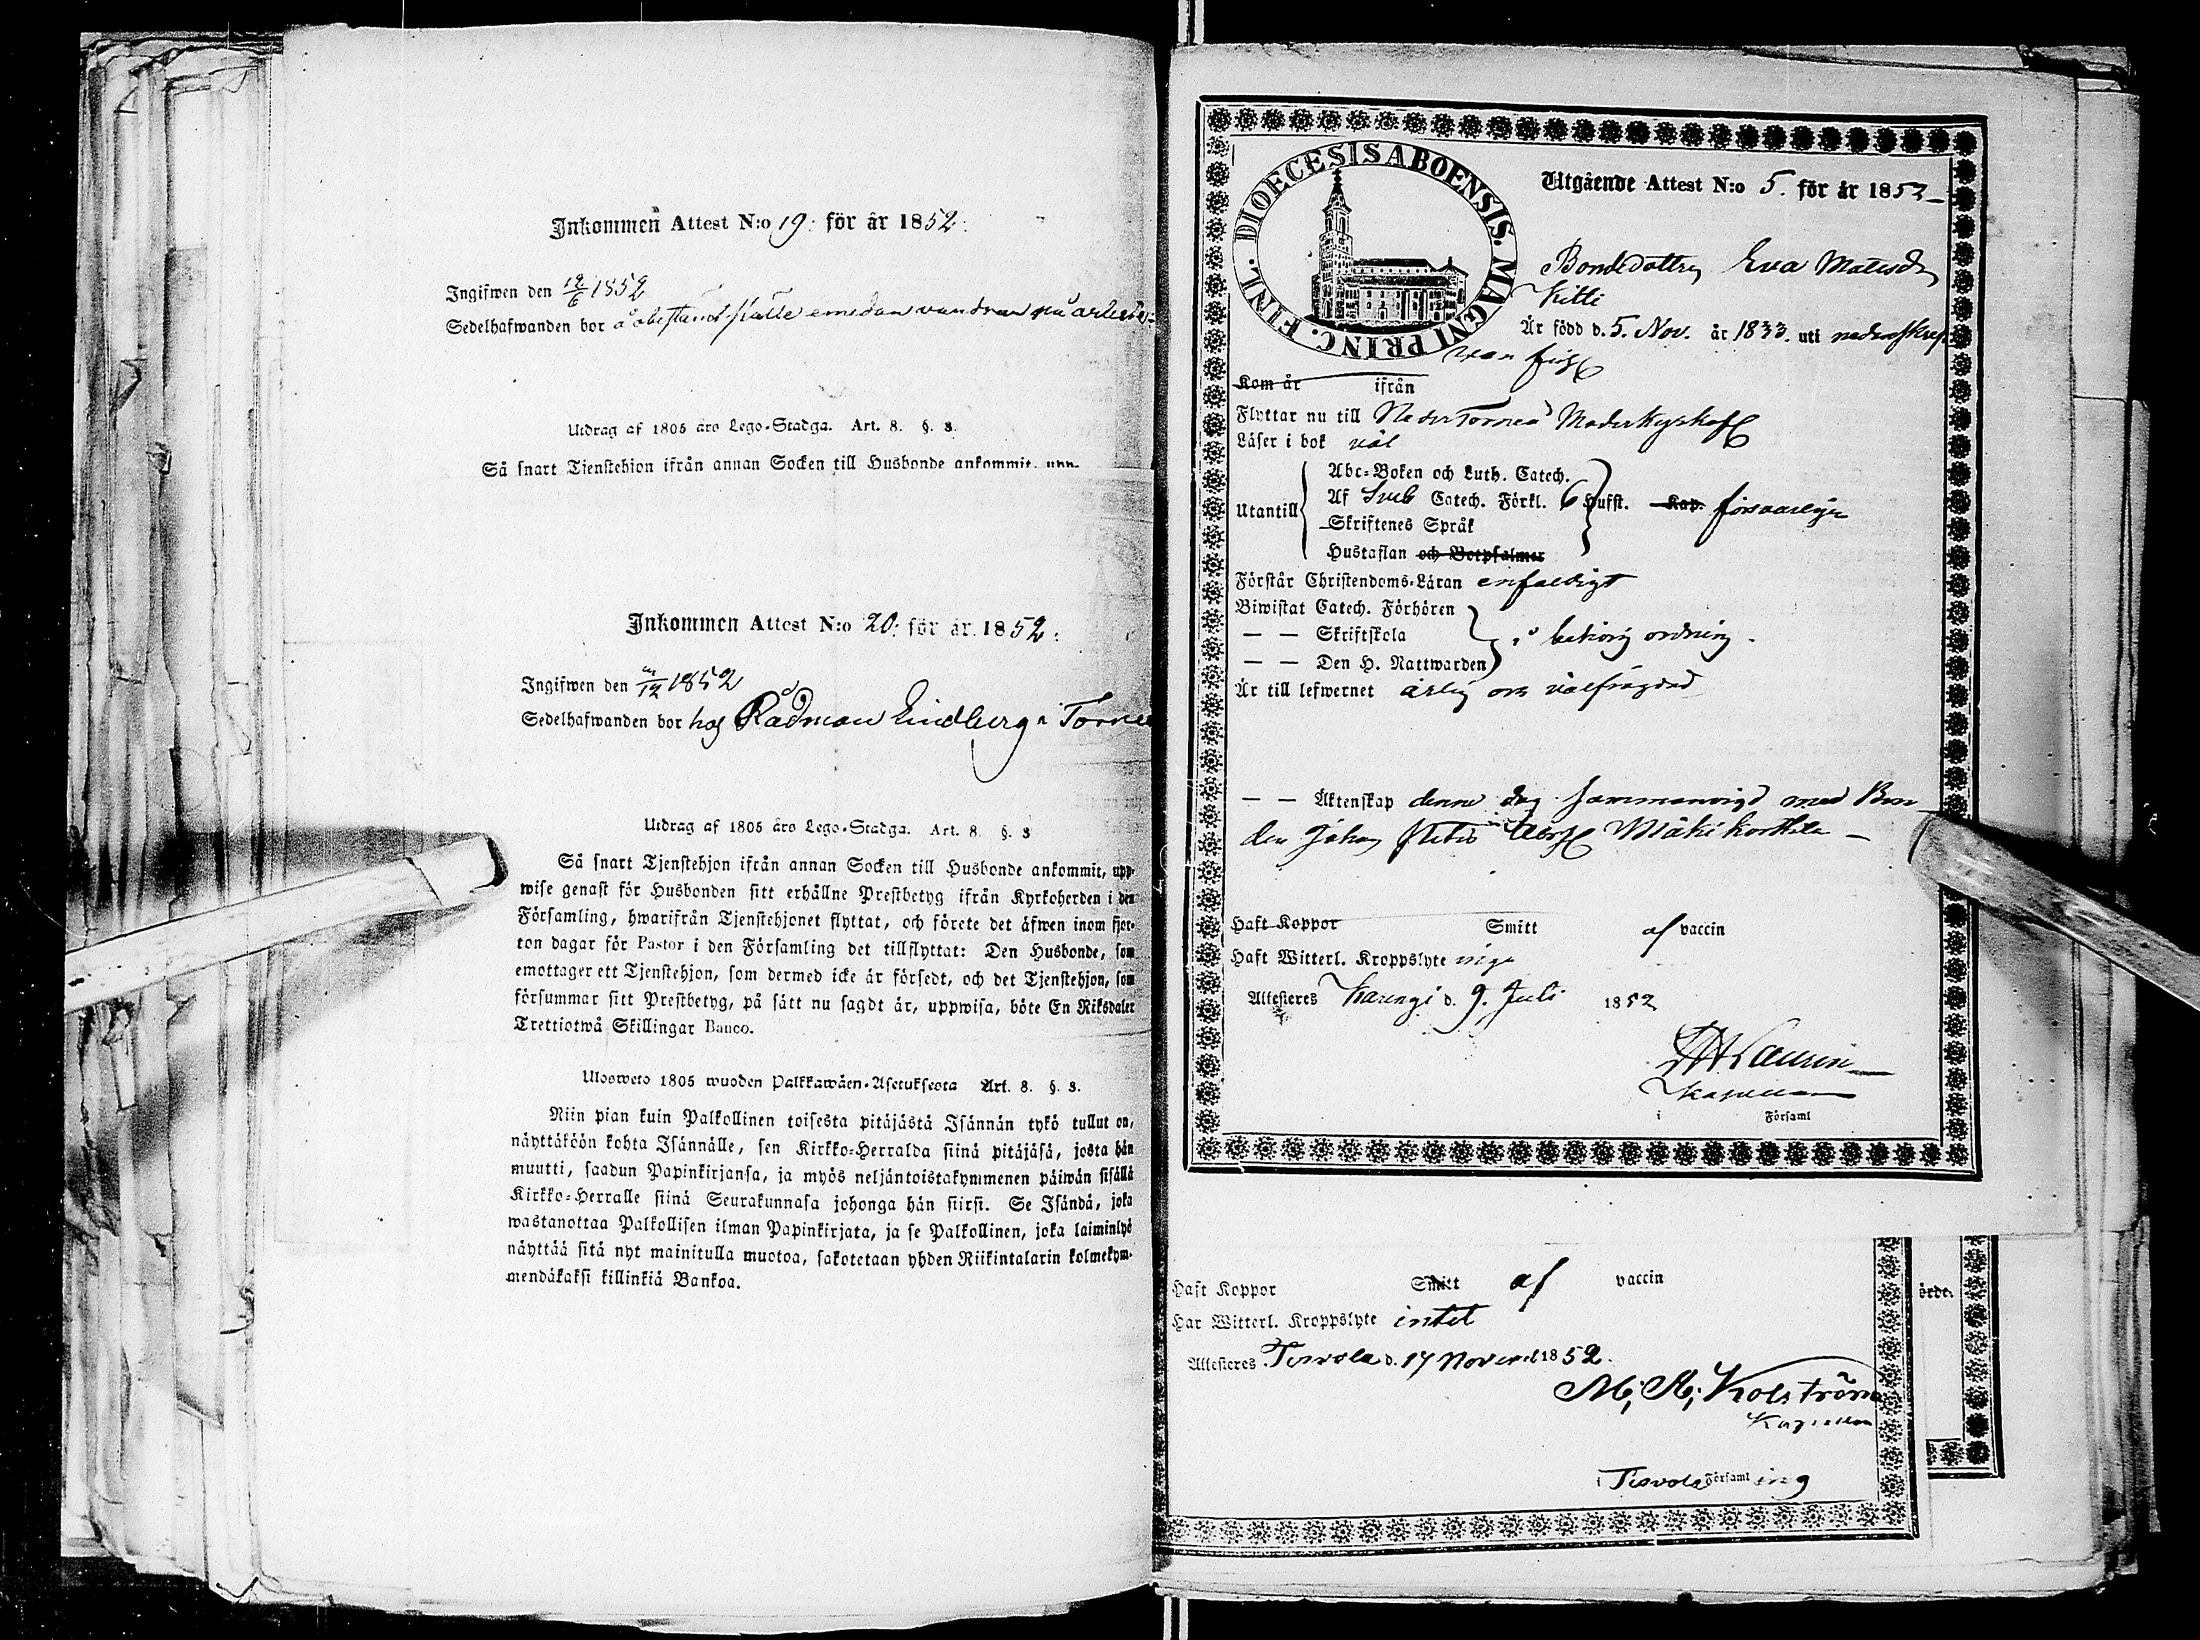 Inkommen Attest N:o 19. för år 1852.
Ingifwen den 12/6 1852
Sedelhafwanden bor å obestämdt ställe emedan vandrar nu
Utdrag af 1805 års Lego-Stadga. Art. 8. §. 3.
Så snart Tjenstehjon ifrån annan Socken till Husbonde ankommit, upp-
Inkommen Attest N:o 20. för år 1852.
Ingifwen den /12 1852
Sedelhafwanden bor hos Rådman Lindberg i Torneå
Utdrag af 1805 års Lego-Stadga. Art. 8 §. 3
Så snart Tjenstehjon ifrån annan Socken till Husbonde ankommit, upp-
wise genast för Husbonden sitt erhållne Prestbetyg ifrån Kyrkoherden i den
Församling, hwarifrån Tjenstehjonet flyttat, och förete det äfwen inom fjor-
ton dagar för Pastor i den Församling det tillflyttat: Den Husbonde, som
emottager ett Tjenstehjon, som dermed icke är försedt, och det Tjenstehjon, som
försummar sitt Prestbetyg, på sätt nu sagdt är, uppwisa, böte En Riksdaler
Trettiotwå Skillingar Banco.
Ulosweto 1805 wuoden Palkkawäen-Asetuksesta Art. 8. §. 3.
Niin pian kuin Palkollinen toisesta pitäjästä Isännän tykö tullut on,
näyttäköön kohta Isännälle, sen Kirkko-Herralda siinä pitäjäsä, josta hän
muutti, saadun Papinkirjansa, ja myös neljäntoistakymmenen päiwän sisällä
Kirkko-Herralle siinä Seurakunnasa johonga hän siirsi. Se Isändä, joka
wastanottaa Palkollisen ilman Papinkirjata, ja se Palkollinen, joka laiminlyö
näyttää sitä nyt mainitulla muotoa, sakotetaan yhden Riikintalarin kolmekym-
mendäkaksi killinkiä Bankoa.
FINL. DIOECESIS ABOENSIS. MAGNI PRINC.
Utgående Attest N:o 5. för år 1852
Bondedottren Eva Matisdr
Kitti
Är född d. 5. Nov. år 1833. uti
Kom år ifrån
Flyttar nu till Neder Torneå Moderkyrka
Läser i bok väl
Utantill
Abc-Boken och Luth. Catech.
Af Sveb Catech. Förkl. 6 Hufst. Kap. försvarligen
Skriftenes Språk
Hustaflan och Botpsalmer
Förstår Christendoms-Läran enfaldigt
Biwistat Catech. Förhören
— — Skriftskola i behörig ordning.
— — Den H. Nattwarden
Är till lefwernet ärlig och välfrägdad
— — Äktenskap denne dag sammanvigd med Bon
den Johan Mäkikorttila
Haft Koppor Smitt af vaccin
Haft Witterl. Kroppslyte inga
Attesteres Karungi d. 9. Juli 1852
Laurin
Kapellan
i Församl
Haft Koppor Smitt af vaccin
Har Witterl. Kroppslyte intet
Attesteres Tervola d. 17 Novemb 1852.
örde.
M. A. Kolström
Kapellan
i Tervola Församling